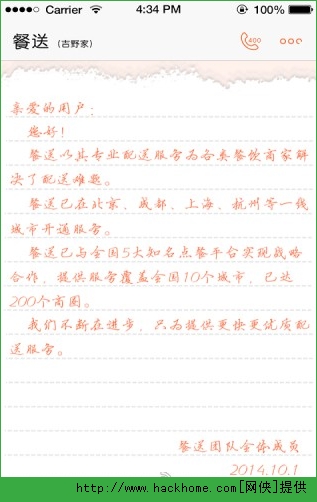 Carrier 4:34 PM 100%
餐送 (吉野家) 400
亲爱的用户:
您好!
餐送以其专业配送服务为各类餐饮商家解
决了配送难题。
餐送已在北京、成都、上海、杭州等一线
城市开通服务。
餐送已与全国5大知名点餐平台实现战略
合作,提供服务覆盖全国10个城市,已达
200个商圈。
我们不断在进步,只为提供更快更优质配
送服务。
餐送团队全体成员
2014.10.1
http://www.hackhome.com[网侠]提供